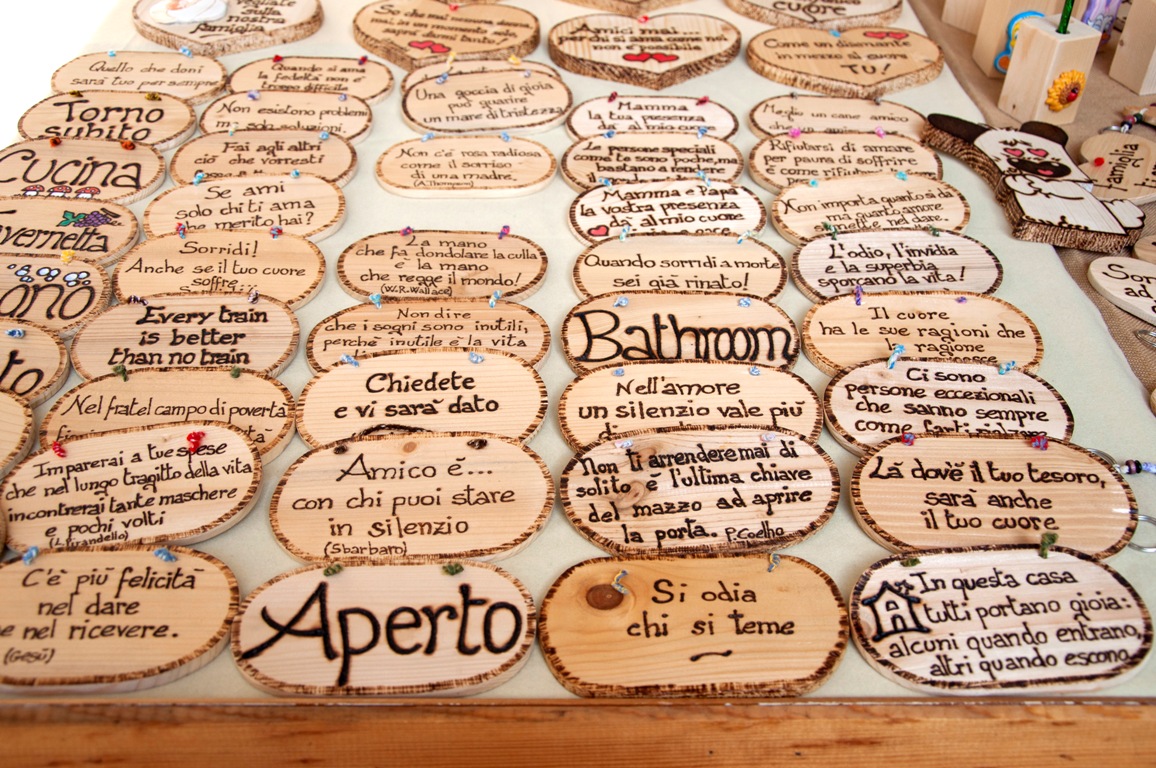 nostra
famiglia
Se
mai, in un momento
darmi tanto!
Amici mai...
perchè si ama come me
non è possibile
cuore
Come un diamante
in mezzo al cuore
TU!
Quello che doni
sarà tuo per sempre
Quando si ama
la fedeltà non è
troppo difficile
Una goccia di gioia
può guarire
un mare di tristezza
Torno
subito
Non esistono problemi
ma solo soluzioni.
Mamma
la tua presenza
dà al mio cuore
Meglio un cane amico
che
Cucina
Fai agli altri
ciò che vorresti
Non c'è rosa radiosa
come il sorriso
di una madre.
(A.Thompson)
Le persone speciali
come te sono poche, ma
bastano a rendere
il
Rifiutarsi di amare
per paura di soffrire
è come rifiutarsi
Famiglia
Tavernetta
Se ami
solo chi ti ama
che merito hai?
Mamma e Papà
la vostra presenza
dà al mio cuore
Non importa quanto si dà
ma quanto amore
si mette nel dare.
Sorridi!
Anche se il tuo cuore
soffre
La mano
che fa dondolare la culla
è la mano
che regge il mondo!
(W.R.Wallace)
Quando sorridi a morte
sei già rinato!
L'odio, l'invidia
e la superbia
sporcano la vita!
ono
Every train
is better
than no train
Non dire
che i sogni sono inutili,
perchè inutile è la vita
Bathroom
Il cuore
ha le sue ragioni che
la ragione
to
Nel fratel campo di povertà
Chiedete
e vi sarà dato
Nell'amore
un silenzio vale più
Ci sono
persone eccezionali
che sanno sempre
come farti
Imparerai a tue spese
che nel lungo tragitto della vita
incontrerai tante maschere
e pochi volti
(L.Pirandello)
Amico è...
con chi puoi stare
in silenzio
(Sbarbaro)
Non ti arrendere mai di
solito è l'ultima chiave
del mazzo ad aprire
la porta. P.Coelho
Là dov'è il tuo tesoro,
sarà anche
il tuo cuore
C'è più felicità
nel dare
e nel ricevere.
(Gesù)
Aperto
Si odia
chi si teme
In questa casa
tutti portano gioia:
alcuni quando entrano,
altri quando escono